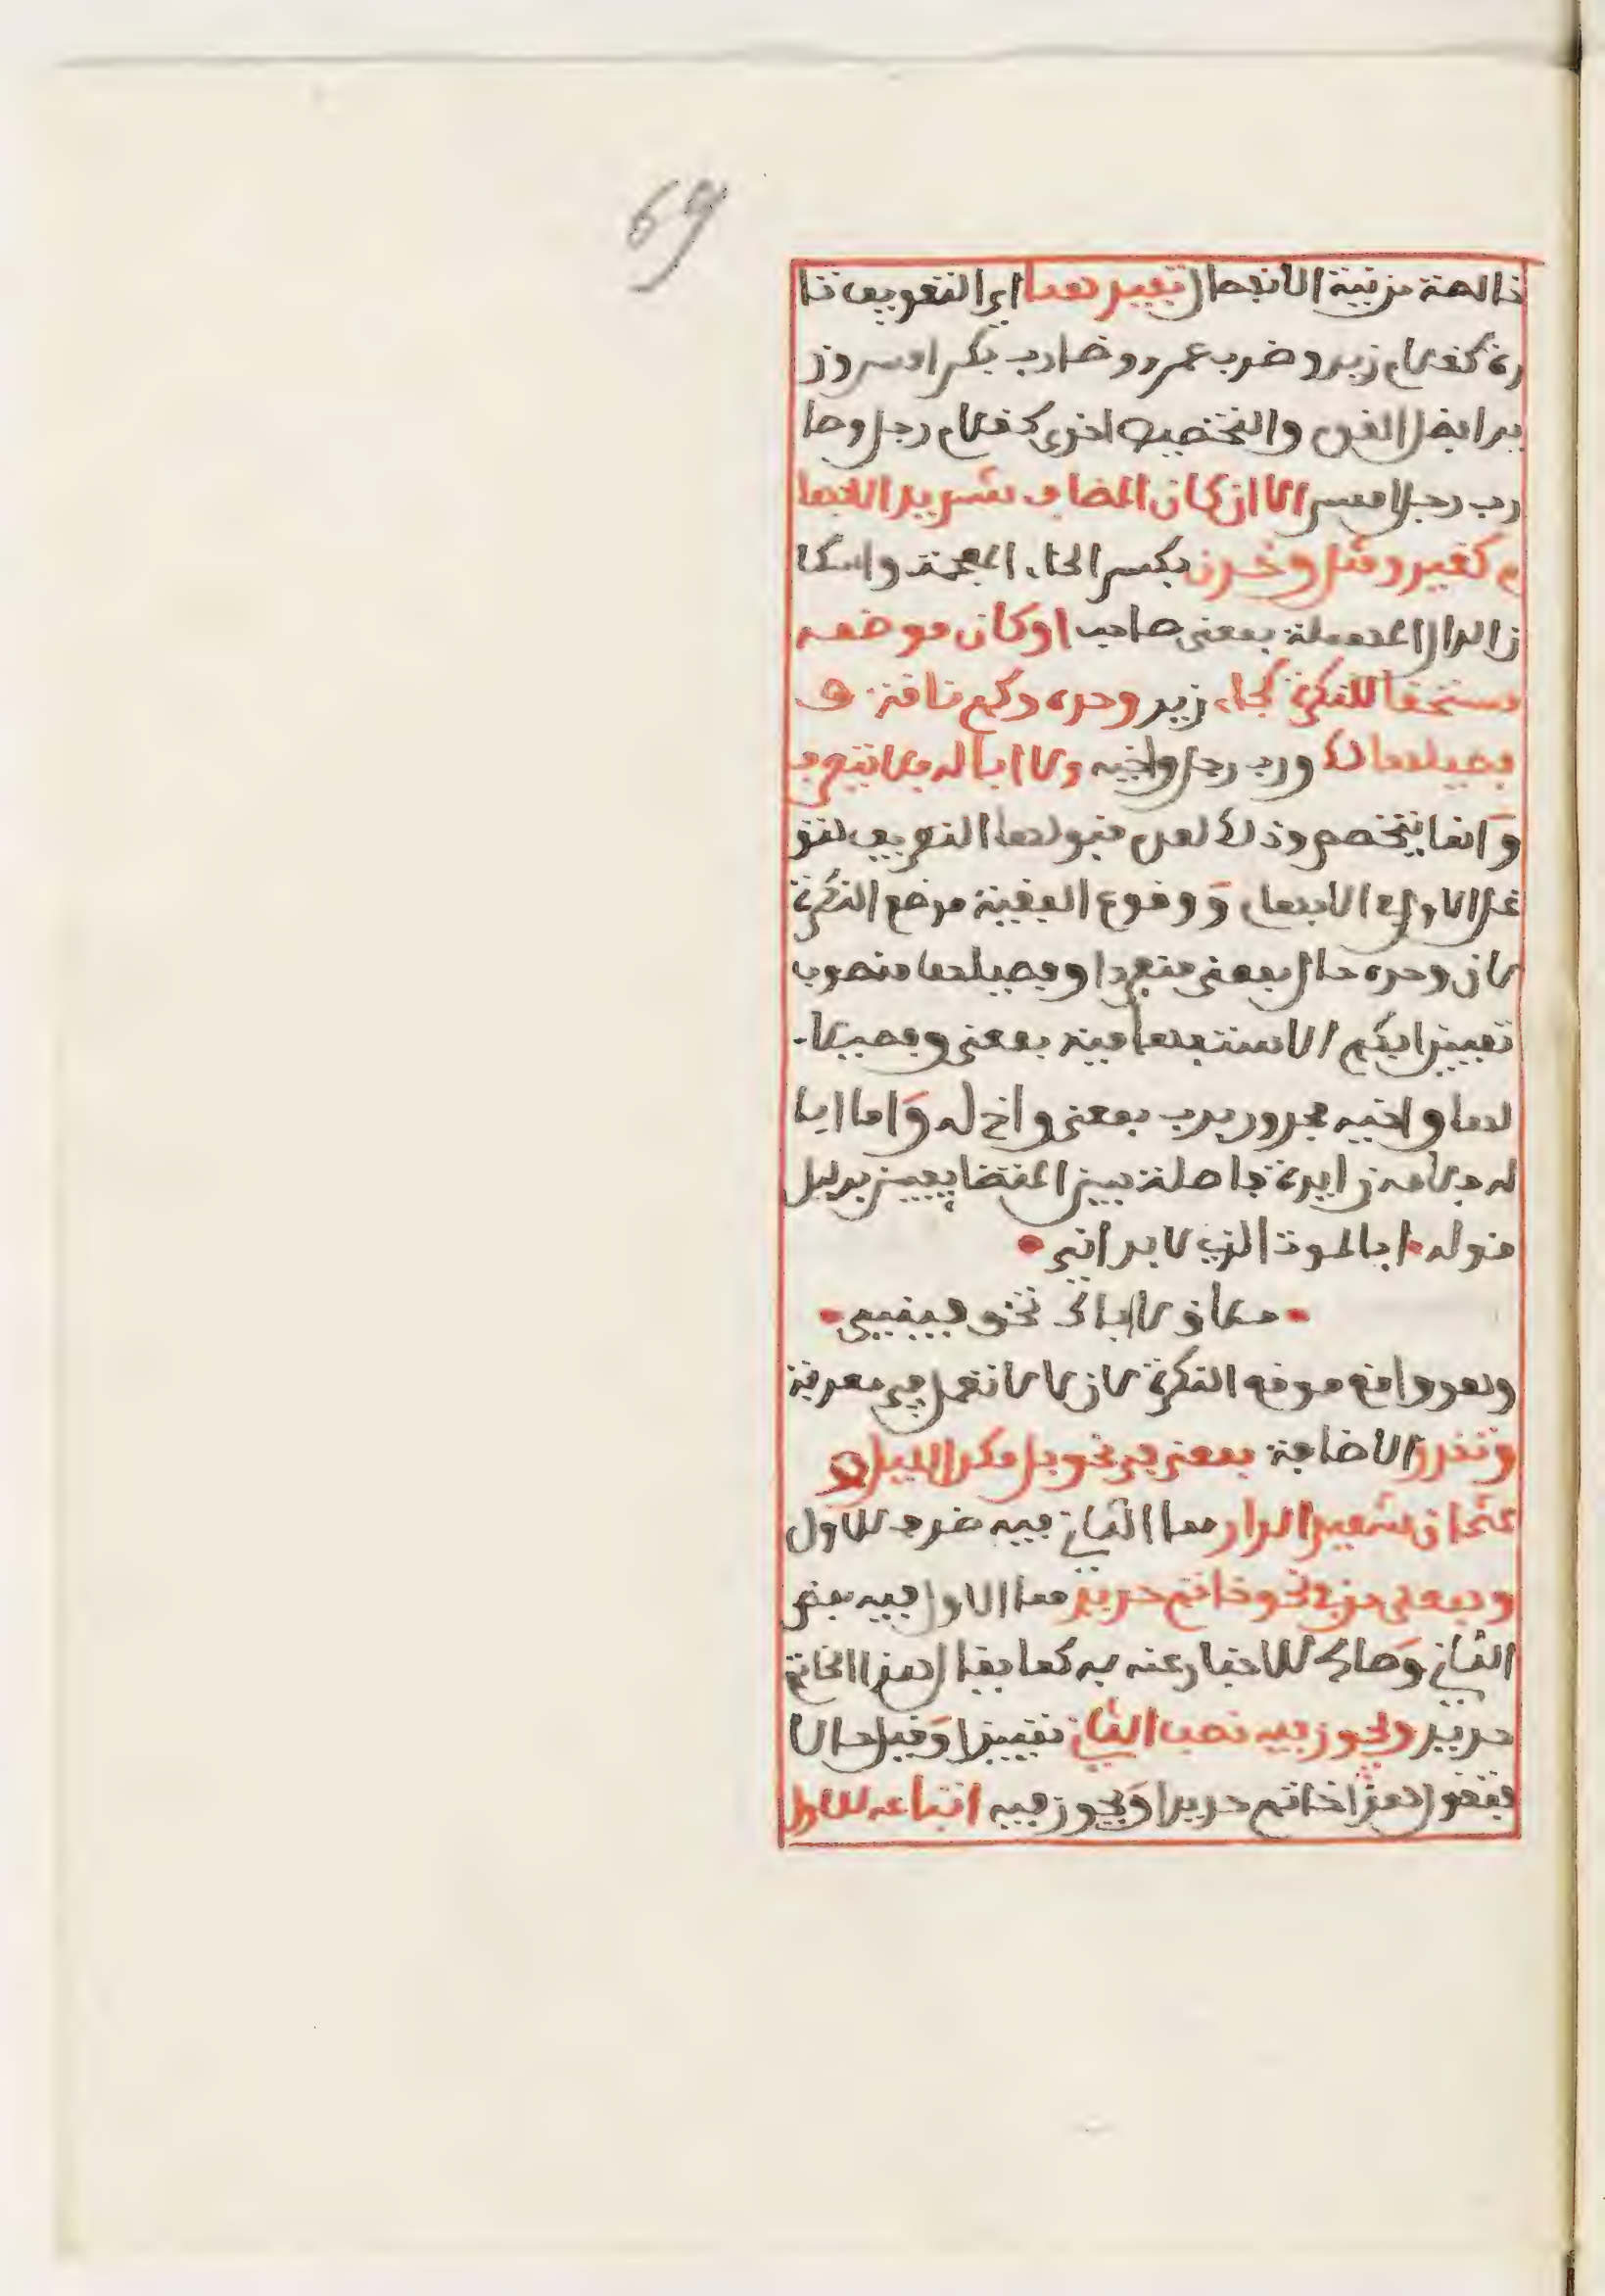 69
خالصة من نية الانفصال تفيدهما اي التعريف تا
رة كغلام زيد وضرب عمرو وضارب بكر امس وز
يد افضل القوم والتخصيص اخرى كغلام رجل وضا
رب رجل امس الا ان كان المضاف شديد الابها
م كغير ومثل وخدن بكسر الخاء المعجمة واسكا
ن الدال المهملة بمعنى صاحب او كان موضعه
مستحقا للنكرة كجاء زيد وحده وكم ناقة و
فصيلها لك ورب رجل واخيه ولا ابا له فلا يتعرف
وانما يتخصص وذلك لعدم قبولهما التعريف لتو
غل الاول في الابهام ووقوع البقية موضع النكرة
لان وحده حال بمعنى منفردا وفصيلها منصوب
تمييزا بكم الاستفهامية بمعنى وفصيلا
لها واخيه مجرور برب بمعنى واخ له واما ابا
له فلامه زايدة فاصلة بين المتضايفين بدليل
قوله • ابالموت الذي لا بد اني •
• ملاق لا اباك تخوفيني •
وهو واقع موقع النكرة لان لا لا تعمل في معرفة
وتقدر الاضافة بمعنى في نحو بل مكر الليل و
عثمان شهيد الدار مما الثاني فيه ظرف للاول
وبمعنى من في نحو خاتم حديد مما الاول فيه بعض
الثاني وصالح للاخبار عنه به كما يقال هذا الخاتم
حديد ويجوز فيه نصب الثاني تمييزا وقيل حالا
فتقول هذا خاتم حديدا ويجوز فيه اتباعه للاول